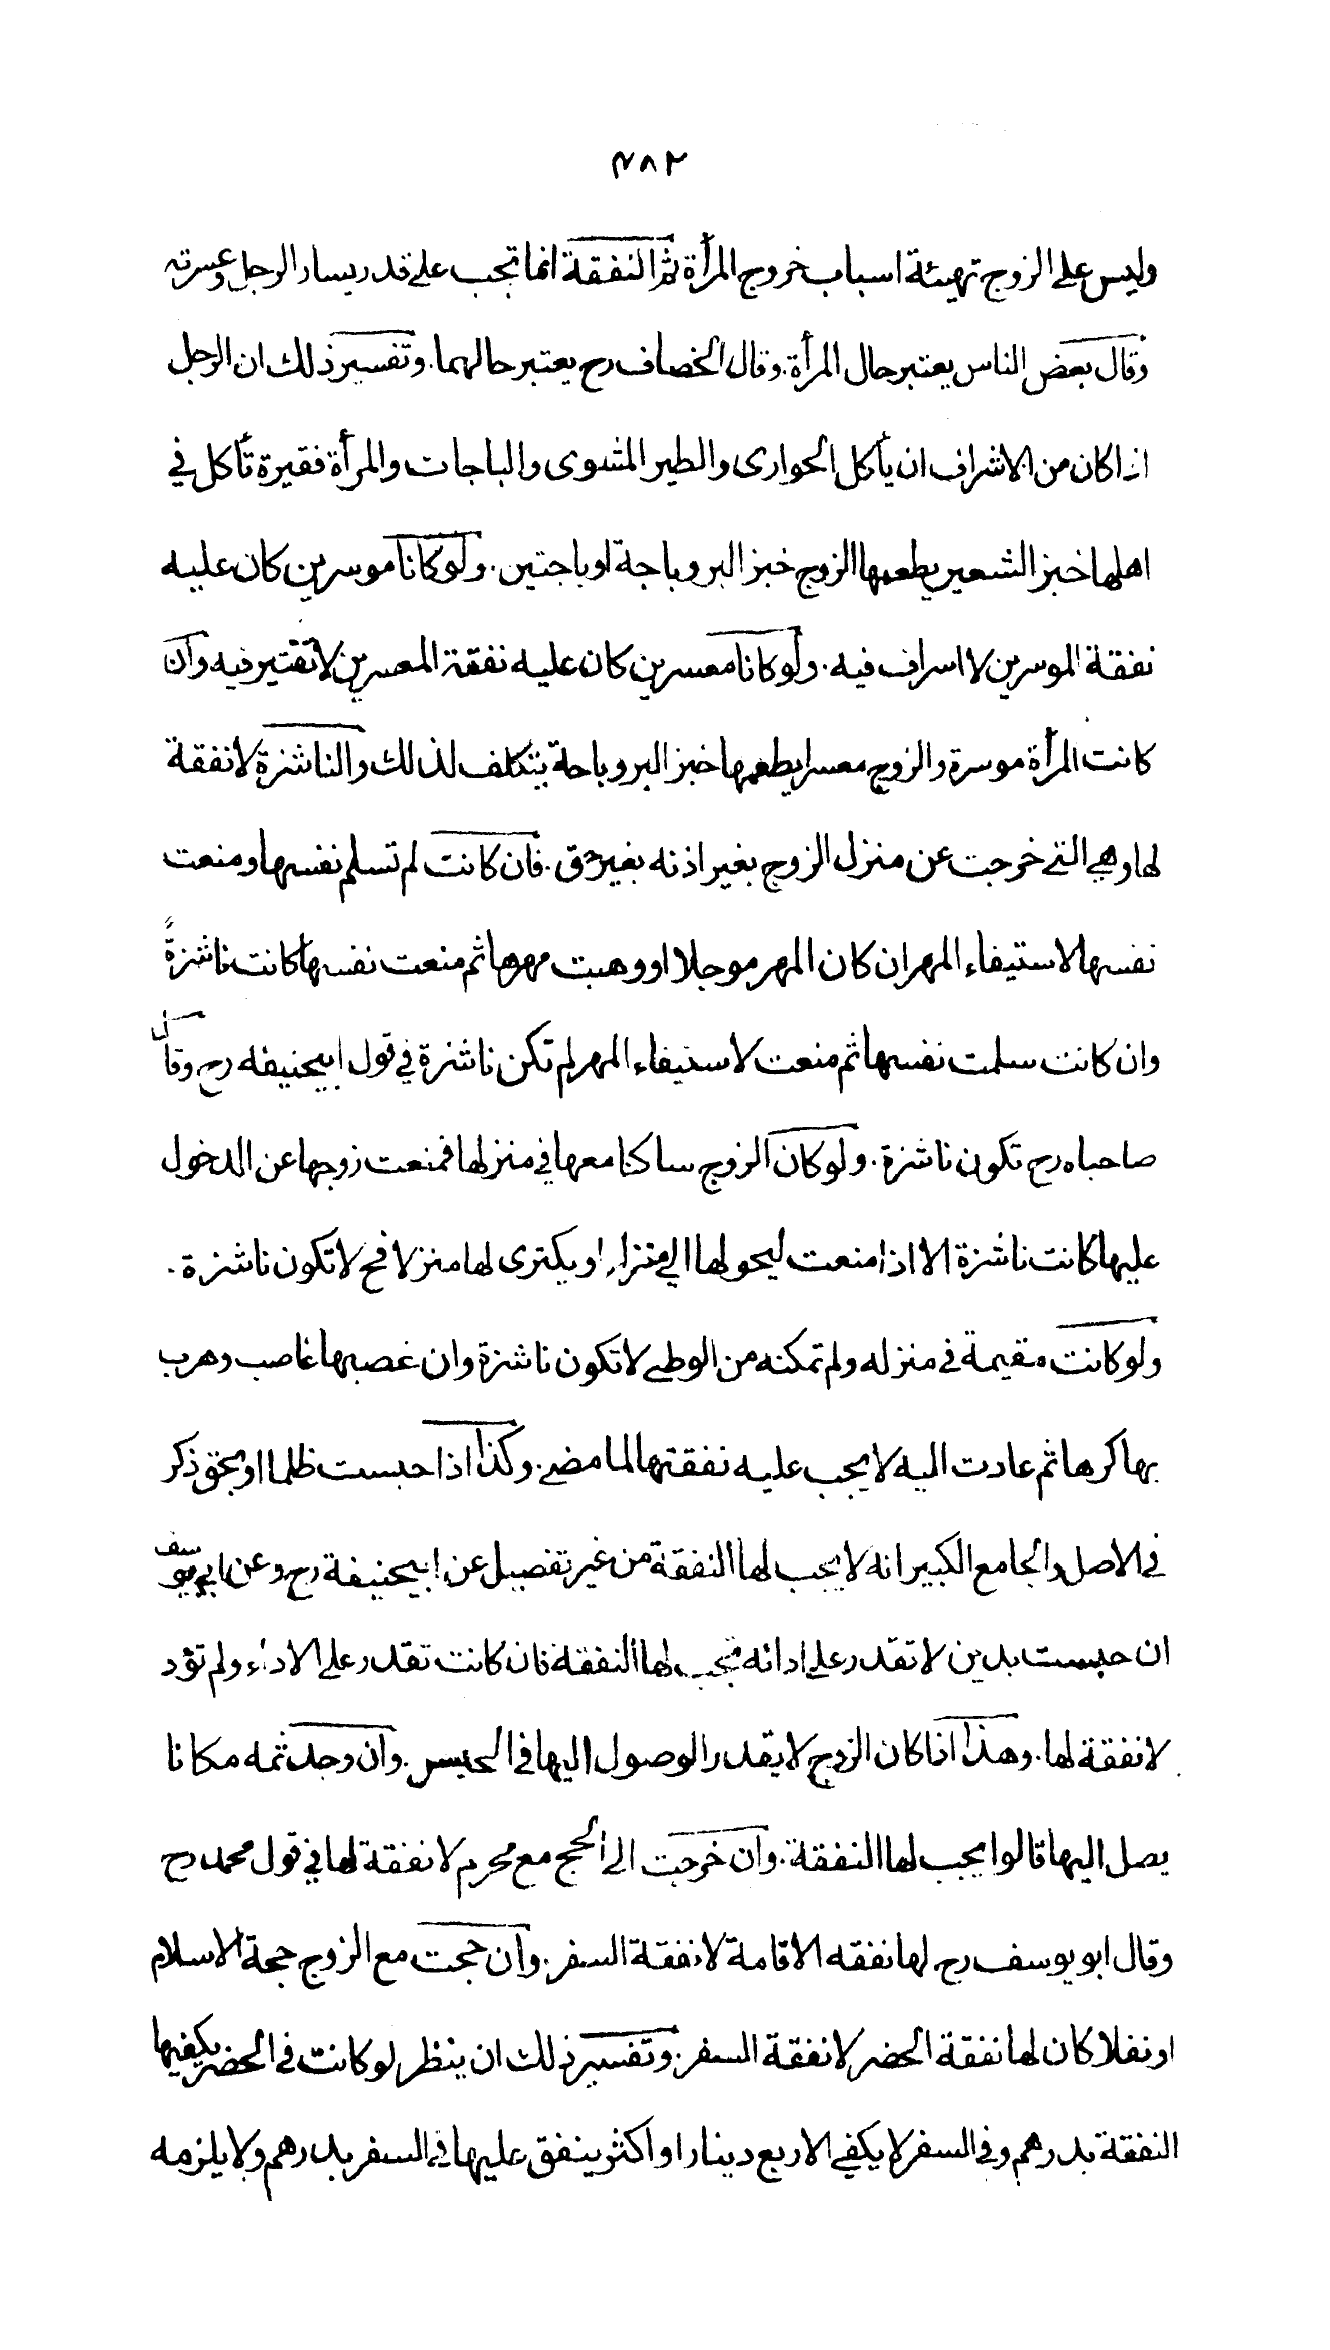 ٤٨٢
وليس على الزوج تهيئة اسباب خروج المرأة ثم النفقة انما تجب على قدر يسار الرجل وعسرته
وقال بعض الناس يعتبر حال المرأة. وقال الخصاف رح يعتبر حالهما. وتفسير ذلك ان الرجل
اذا كان من الاشراف ان يأكل الحوارى والطير المشوى والباجات والمرأة فقيرة تأكل في
اهلها خبز الشعير يطعمها الزوج خبز البر وباجة او باجتين. ولو كانا موسرين كان عليه
نفقة الموسرين لا اسراف فيه. ولو كانا معسرين كان عليه نفقة المعسرين لا تقتير فيه وان
كانت المرأة موسرة والزوج معسرا يطعمها خبز البر وباجة يتكلف لذلك والناشزة لا نفقة
لها وهي التي خرجت عن منزل الزوج بغير اذنه بغير حق. فان كانت لم تسلم نفسها ومنعت
نفسها لاستيفاء المهر ان كان المهر موجلا او وهبت مهرها ثم منعت نفسها كانت ناشزةً
وان كانت سلمت نفسها ثم منعت لاستيفاء المهر لم تكن ناشزة في قول ابيحنيفه رح وقال
صاحباه رح تكون ناشزة. ولو كان الزوج ساكنا معها في منزلها فمنعت زوجها عن الدخول
عليها كانت ناشزة الا اذا منعت ليحولها الى منزله او يكترى لها منزلا فح لا تكون ناشزة.
ولو كانت مقيمة في منزله ولم تمكنه من الوطي لا تكون ناشزة وان غصبها غاصب وهرب
بها كرها ثم عادت اليه لا يجب عليه نفقتها لما مضى. وكذا اذا حبست ظلما او بحق ذكر
في الاصل والجامع الكبير انه لا يجب لها النفقة من غير تفصيل عن ابيحنيفة رح وعن ابي يوسف
ان حبست بدين لا تقدر على ادائه تجب لها النفقة فان كانت تقدر على الاداء ولم تؤد
لا نفقة لها. وهذا اذا كان الزوج لا يقدر الوصول اليها في الحبس. وان وجد ثمه مكانا
يصل اليها قالوا يجب لها النفقة. وان خرجت الى الحج مع محرم لا نفقة لها في قول محمد رح
وقال ابو يوسف رح لها نفقه الاقامة لا نفقة السفر. وان حجت مع الزوج حجة الاسلام
او نفلا كان لها نفقة الحضر لا نفقة السفر. وتفسير ذلك ان ينظر لو كانت في الحضر يكفيها
النفقة بدرهم وفي السفر لا يكفي الا ربع دينار او اكثر ينفق عليها في السفر بدرهم ولا يلزمه